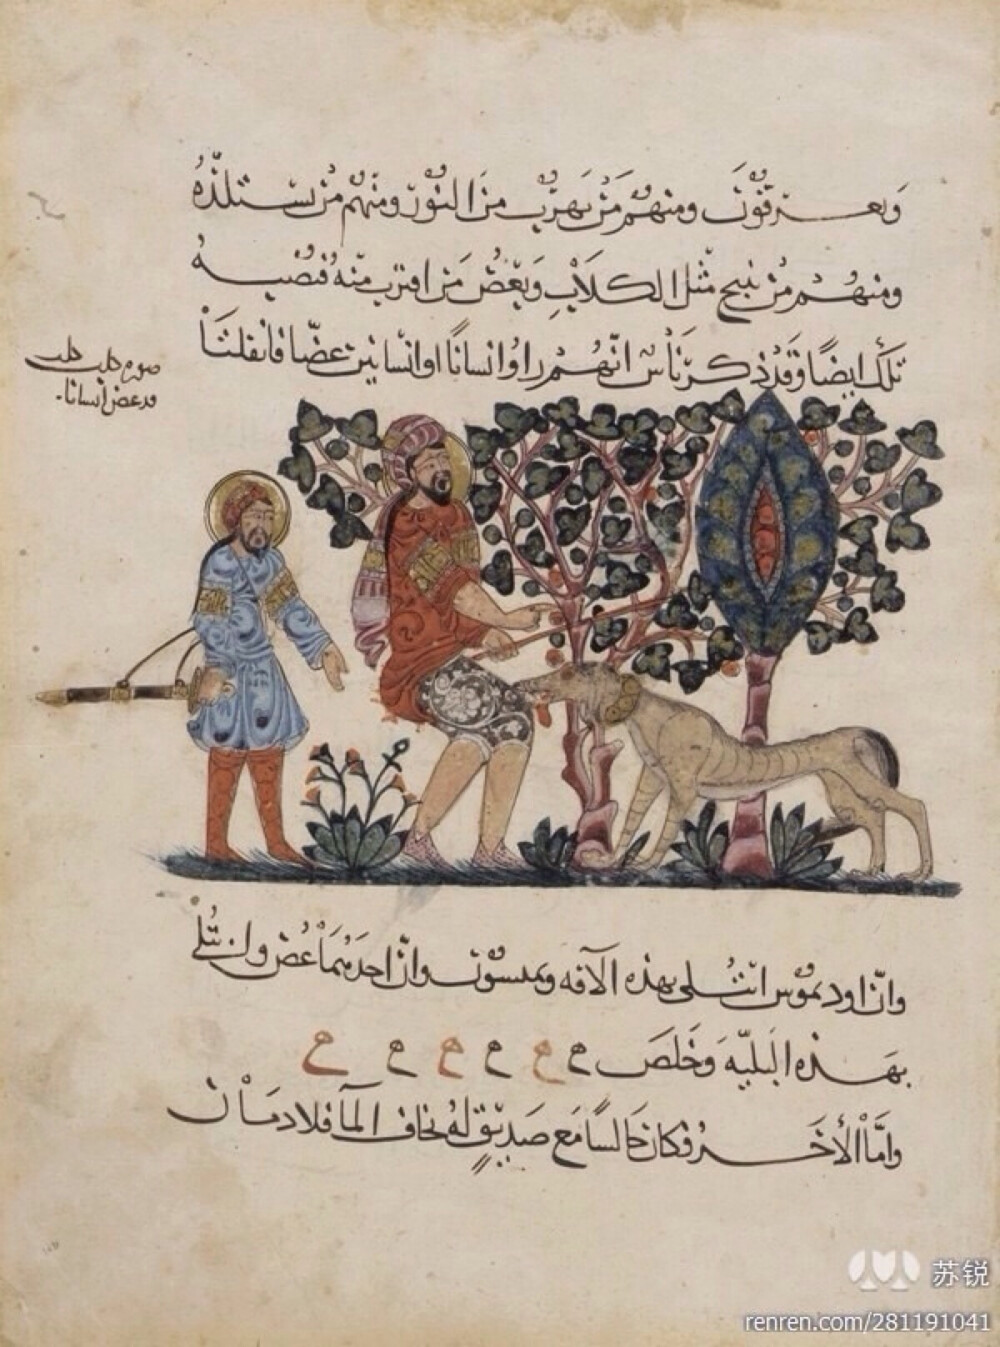 ويعرقون ومنهم من يهرب من النور ومنهم من يستلذه
ومنهم من ينبح مثل الكلاب ويعض من اقترب منه فتصيبه
تلك ايضا وقد ذكر ناس انهم راوا انسانا او انسانين عضا فانفلتا
صورة كلب كلب
قد عض انسانا
وان اوديموس ابتلى بهذه الآفة وان احدهما عض وابتلي
بهذه البلية وخلص ه ه ه ه ه ه
واما الأخر فكان جالسا مع صديق له يخاف الماء فلا دمان
苏锐
renren.com/281191041